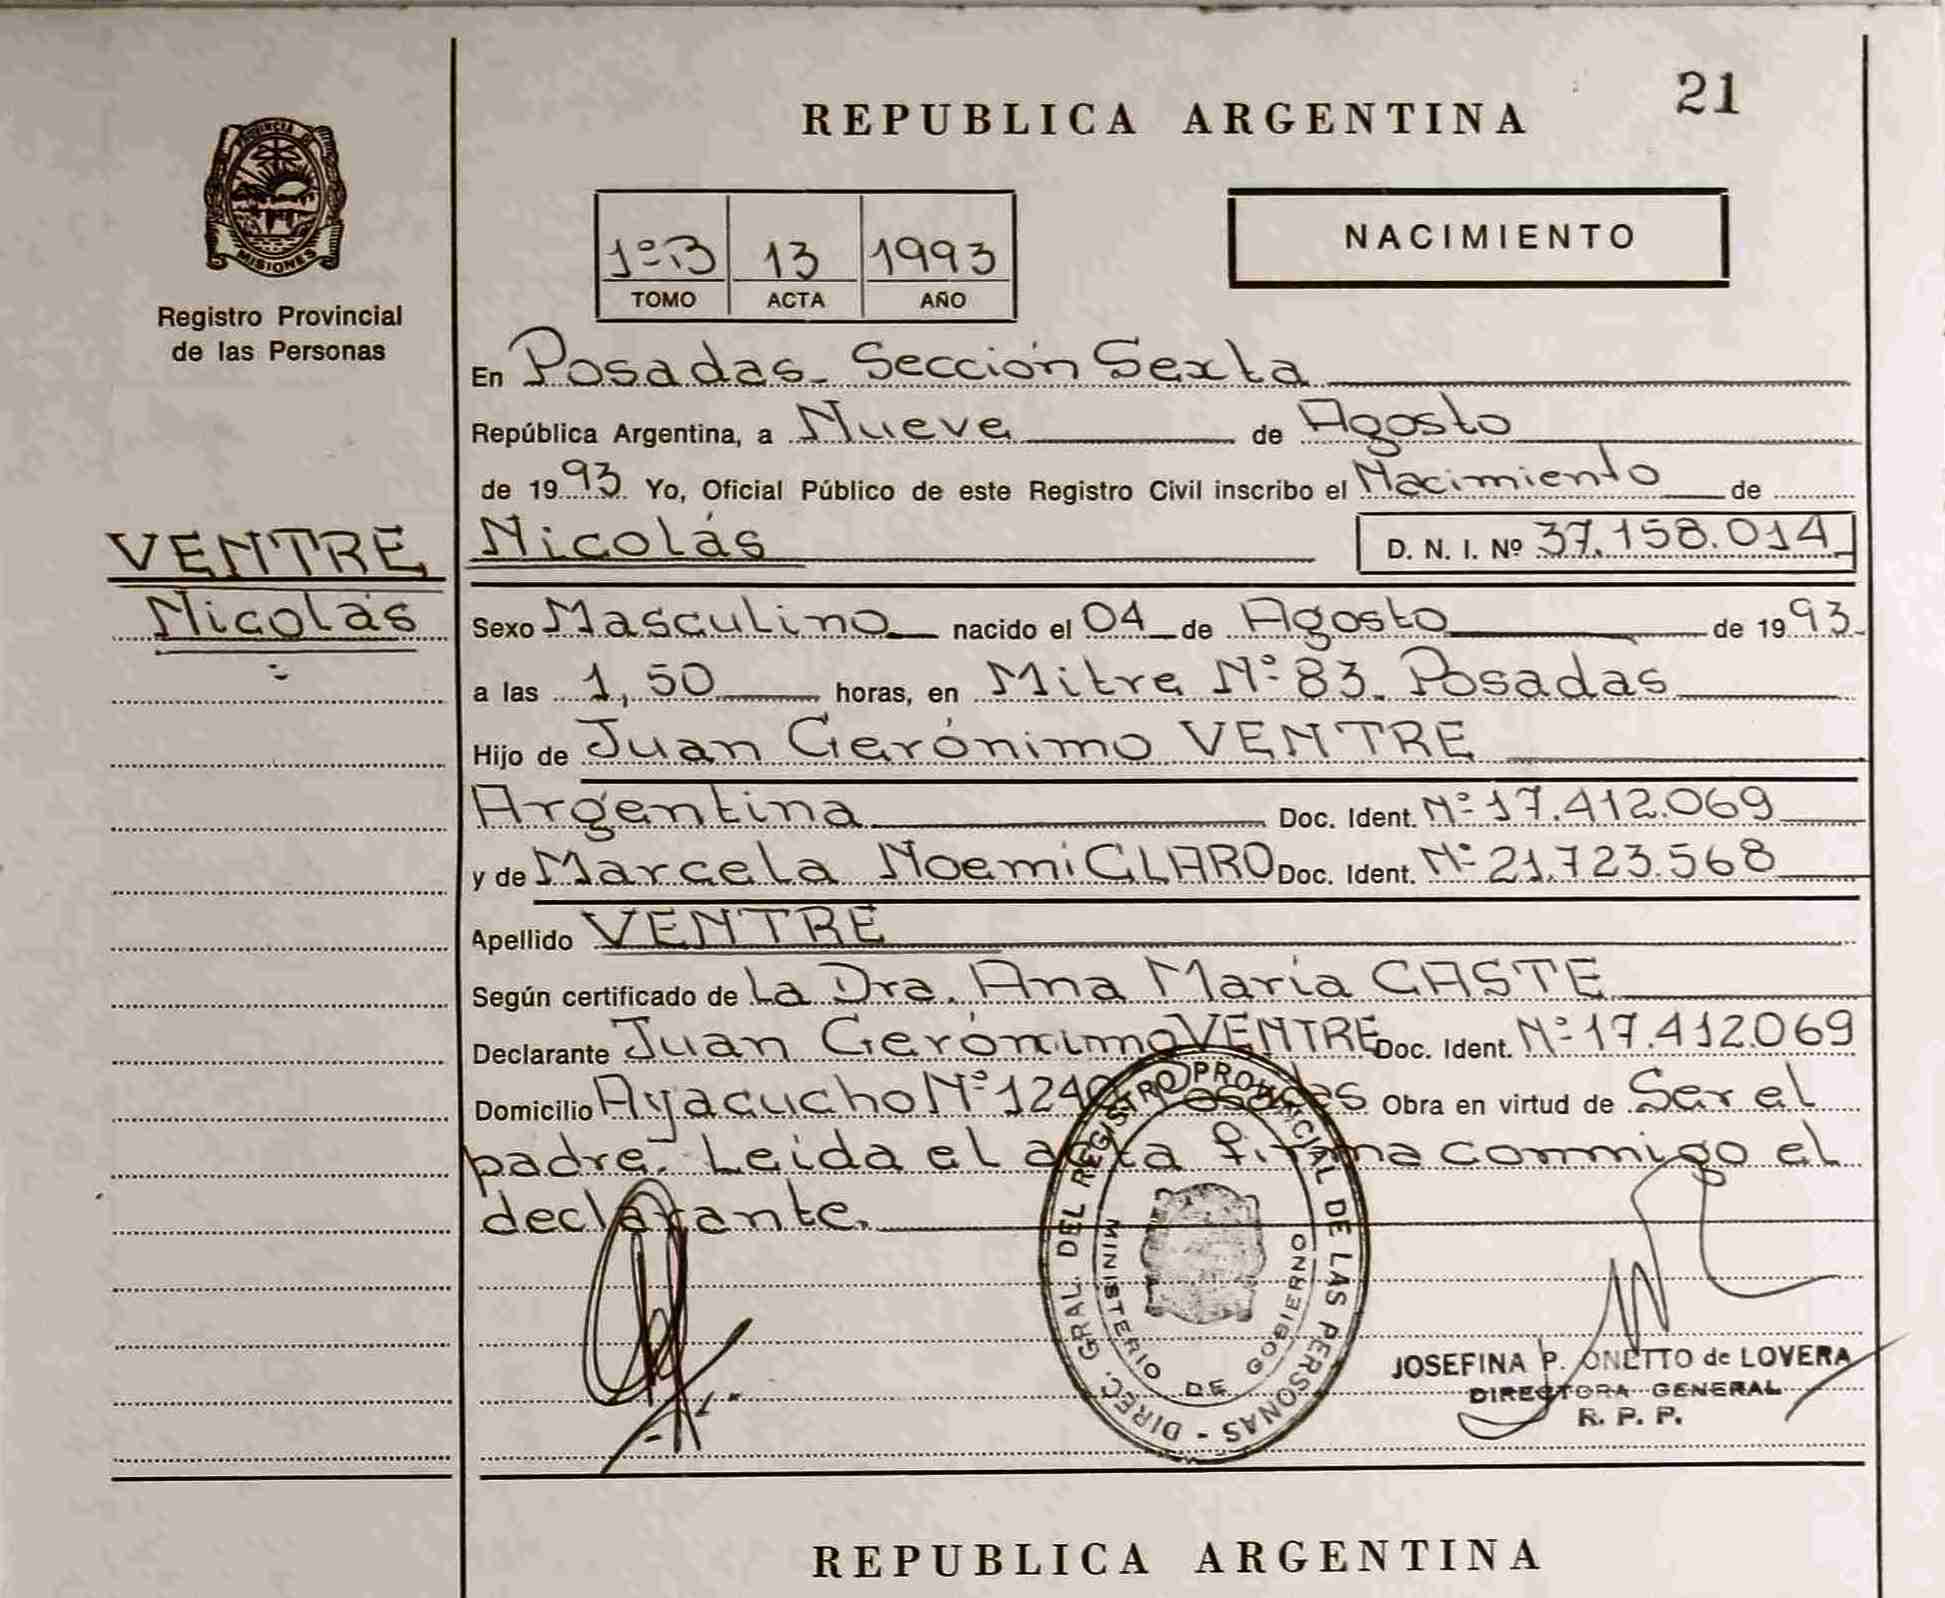 21
REPUBLICA ARGENTINA
PROVINCIA DE
MISIONES
Registro Provincial
de las Personas
1º B 13 1993
TOMO ACTA AÑO
NACIMIENTO
En Posadas - Sección Sexta
República Argentina, a Nueve de Agosto
de 1993 Yo, Oficial Público de este Registro Civil inscribo el Nacimiento de
VENTRE
Nicolás
Nicolás D. N. I. Nº 37.158.014
Sexo Masculino nacido el 04 de Agosto de 1993
a las 1,50 horas, en Mitre Nº 83. Posadas
Hijo de Juan Gerónimo VENTRE
Argentina Doc. Ident. Nº 17.412.069
y de Marcela Noemi CLARO Doc. Ident. Nº 21.723.568
Apellido VENTRE
Según certificado de La Dra. Ana María CASTE
Declarante Juan Gerónimo VENTRE Doc. Ident. Nº 17.412.069
Domicilio Ayacucho Nº Posadas Obra en virtud de Ser el
padre. Leida el acta firma conmigo el
declarante.
DIREC. GRAL. DEL REGISTRO PROVINCIAL DE LAS PERSONAS -
MINISTERIO DE GOBIERNO
JOSEFINA P. ONETTO de LOVERA
DIRECTORA GENERAL
R. P. P.
REPUBLICA ARGENTINA